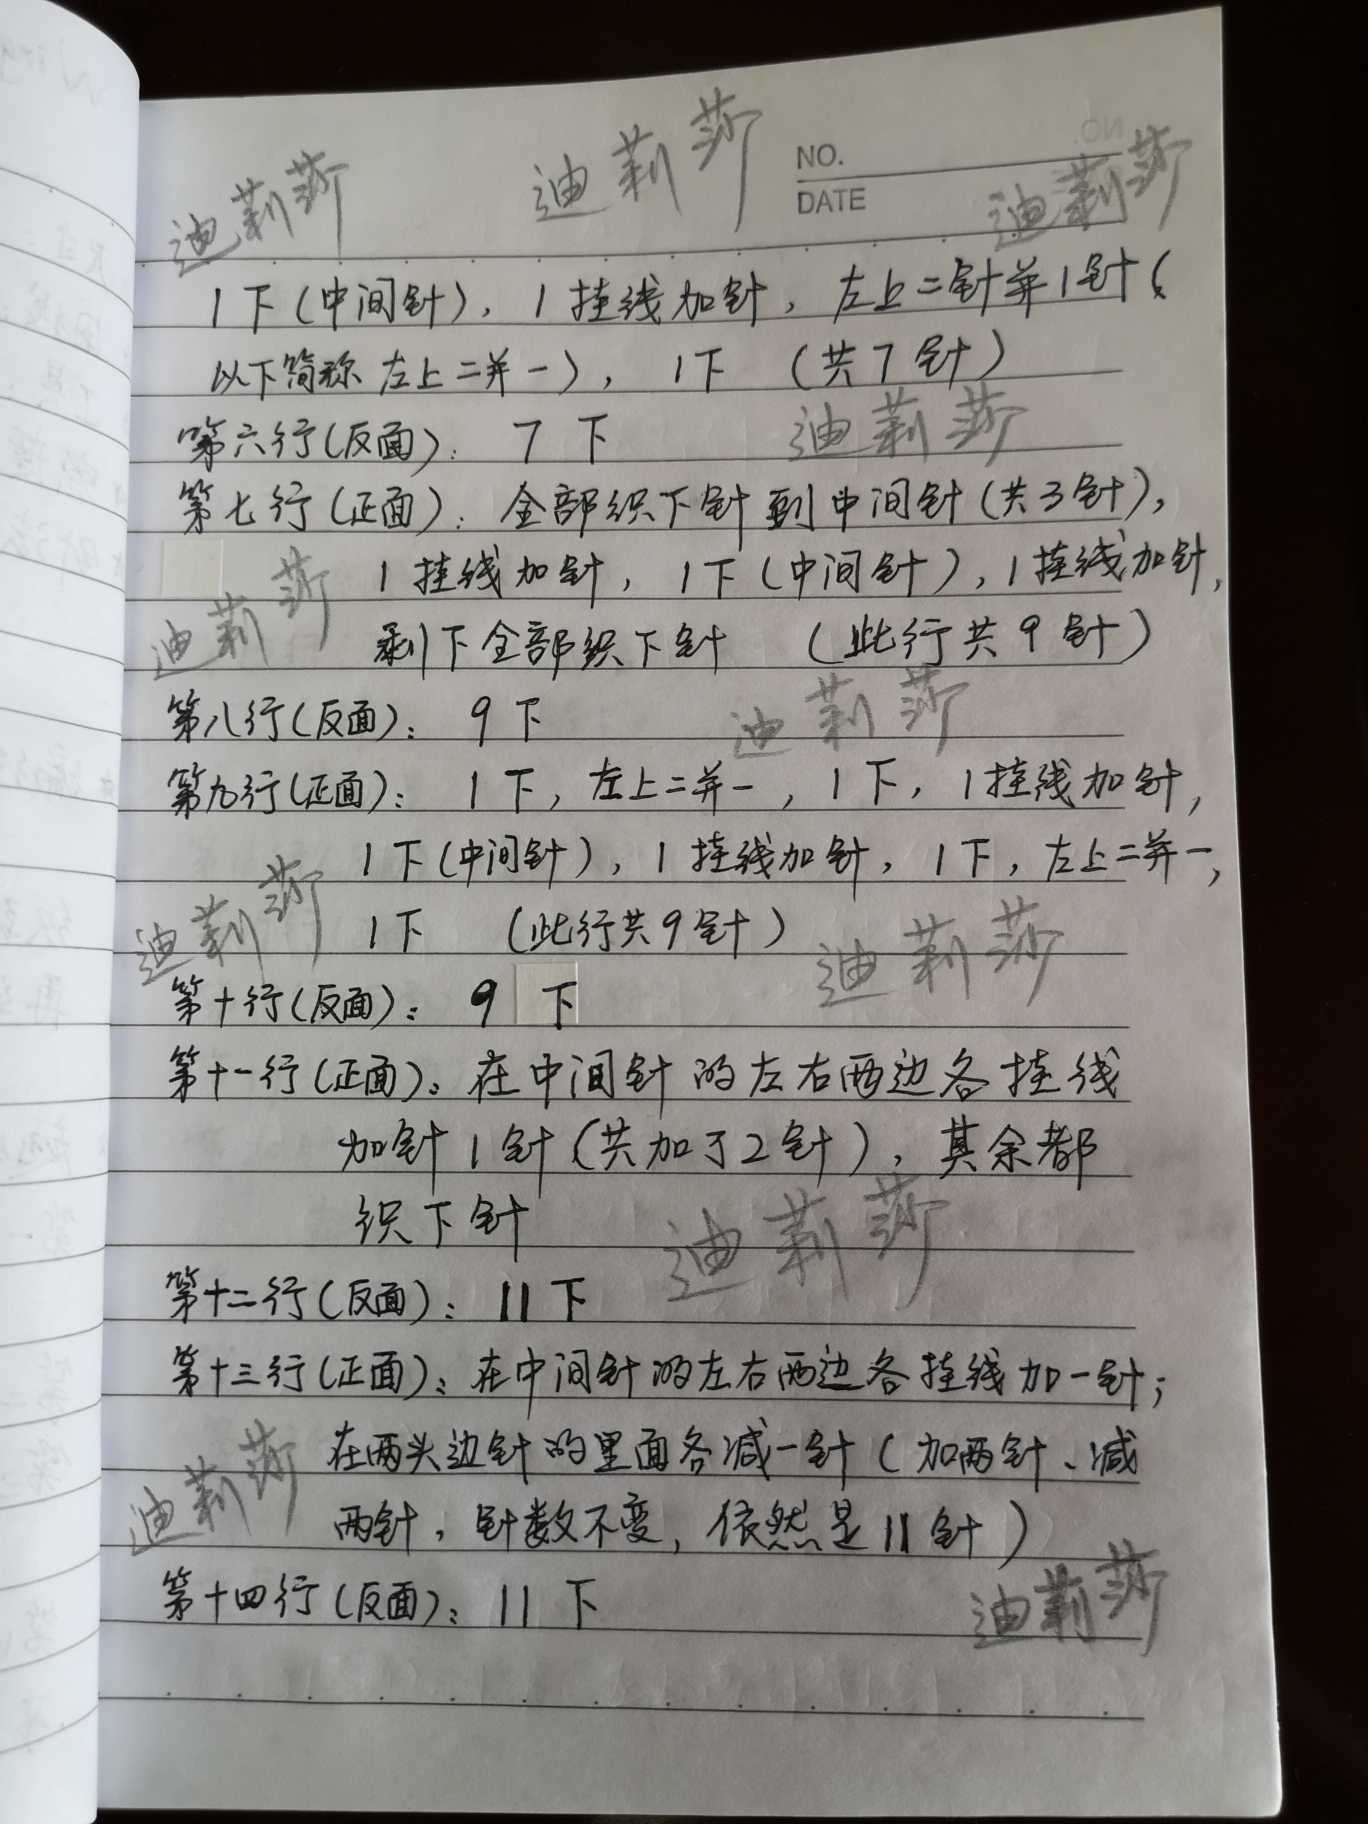 迪莉莎 迪莉莎 NO. 迪莉莎
DATE
1下(中间针), 1挂线加针, 左上二针并1针(
以下简称左上二并一), 1下 (共7针)
第六行(反面): 7下 迪莉莎
第七行(正面): 全部织下针到中间针(共3针),
1挂线加针, 1下(中间针), 1挂线加针,
迪莉莎
剩下全部织下针 (此行共9针)
第八行(反面): 9下 迪莉莎
第九行(正面): 1下, 左上二并一, 1下, 1挂线加针,
1下(中间针), 1挂线加针, 1下, 左上二并一,
迪莉莎 1下 (此行共9针) 迪莉莎
第十行(反面): 9下
第十一行(正面): 在中间针的左右两边各挂线
加针1针(共加了2针), 其余都
织下针 迪莉莎
第十二行(反面): 11下
第十三行(正面): 在中间针的左右两边各挂线加一针;
在两头边针的里面各减一针(加两针、减
迪莉莎 两针, 针数不变, 依然是11针)
第十四行(反面): 11下 迪莉莎